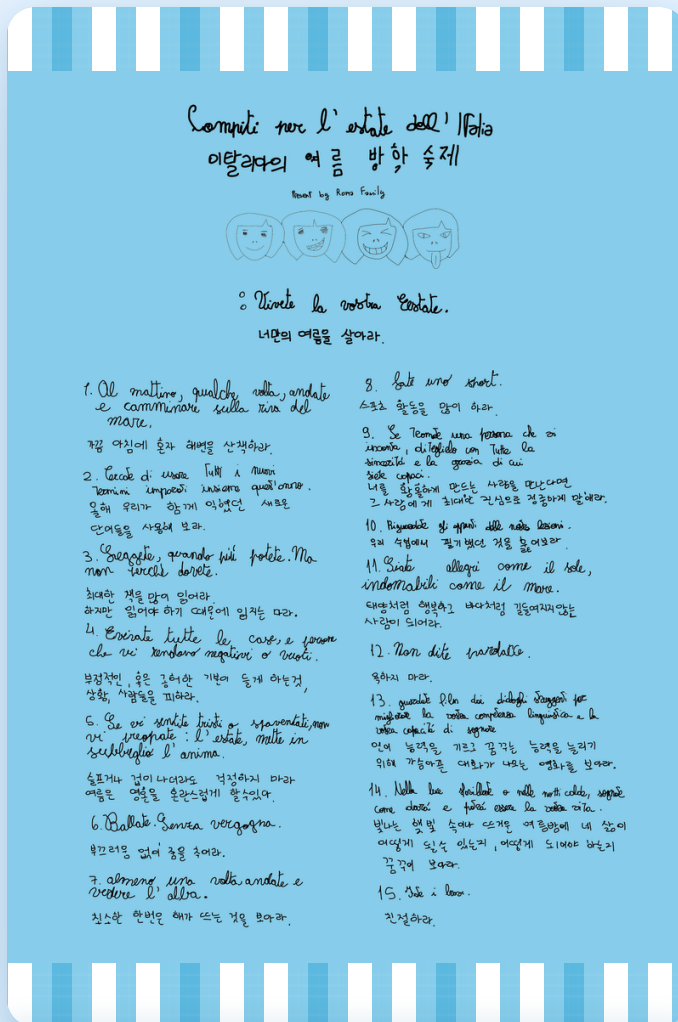 Compiti per l'estate dell'Italia
이탈리아의 여름 방학 숙제
Present by Roma Family
: Vivete la vostra Estate.
너만의 여름을 살아라.
1. Al mattino, qualche volta, andate
e camminare sulla riva del
mare.
가끔 아침에 혼자 해변을 산책하라.
2. Cercate di usare tutti i nuovi
termini imparati insieme quest'anno.
올해 우리가 함께 익혔던 새로운
단어들을 사용해 보라.
3. Leggete, quando più potete. Ma
non perchè dovete.
최대한 책을 많이 읽어라.
하지만 읽어야 하기 때문에 읽지는 마라.
4. Evitate tutte le cose, e persone
che vi rendono negativi o vuoti.
부정적인, 혹은 공허한 기분이 들게 하는것,
상황, 사람들을 피하라.
5. Se vi sentite tristi o spaventati, non
vi preoccupate: l'estate, mette in
subbuglio l'anima.
슬프거나 겁이 나더라도 걱정하지 마라
여름은 영혼을 혼란스럽게 할수있어
6. Ballate. Senza vergogna.
부끄러움 없이 춤을 추어라.
7. almeno una volta andate e
vedere l'alba.
최소한 한번은 해가 뜨는 것을 보아라.
8. Fate uno sport.
스포츠 활동을 많이 하라.
9. Se trovate una persona che vi
incanta, diteglielo con tutta la
sincerità e la grazia di cui
siete capaci.
너를 황홀하게 만드는 사람을 만난다면
그 사람에게 최대한 진심으로 정중하게 말해라.
10. Riguardate gli appunti delle nostre lezioni.
우리 수업에서 필기했던 것을 훑어보라.
11. Siate allegri come il sole,
indomabili come il mare.
태양처럼 행복하고 바다처럼 길들여지지않는
사람이 되어라.
12. Non dite parolacce.
욕하지 마라.
13. guardate film dai dialoghi struggenti per
migliorare la vostra competenza linguistica e la
vostra capacità di sognare
언어 능력을 기르고 꿈꾸는 능력을 늘리기
위해 가슴아픈 대화가 나오는 영화를 보아라.
14. Nella luce sfavillante o nelle notti calde, sognate
come dovrà e potrà essere la vostra vita.
빛나는 햇빛 속이나 뜨거운 여름밤에 네 삶이
어떻게 될수 있는지, 어떻게 되어야 하는지
꿈꾸어 보아라.
15. i
친절하라.